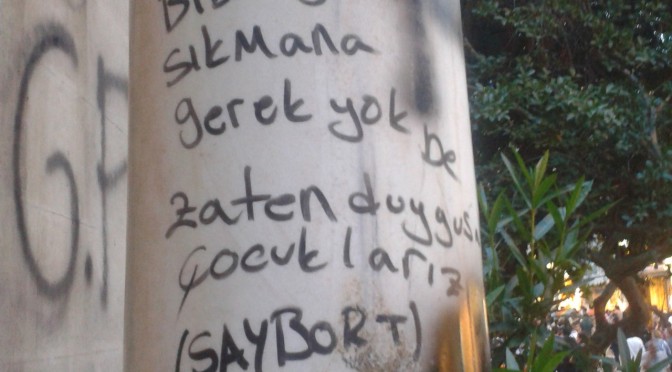 sıkmana
gerek yok
be
zaten duygus
çocuklarız
(SAYBORT)
G.